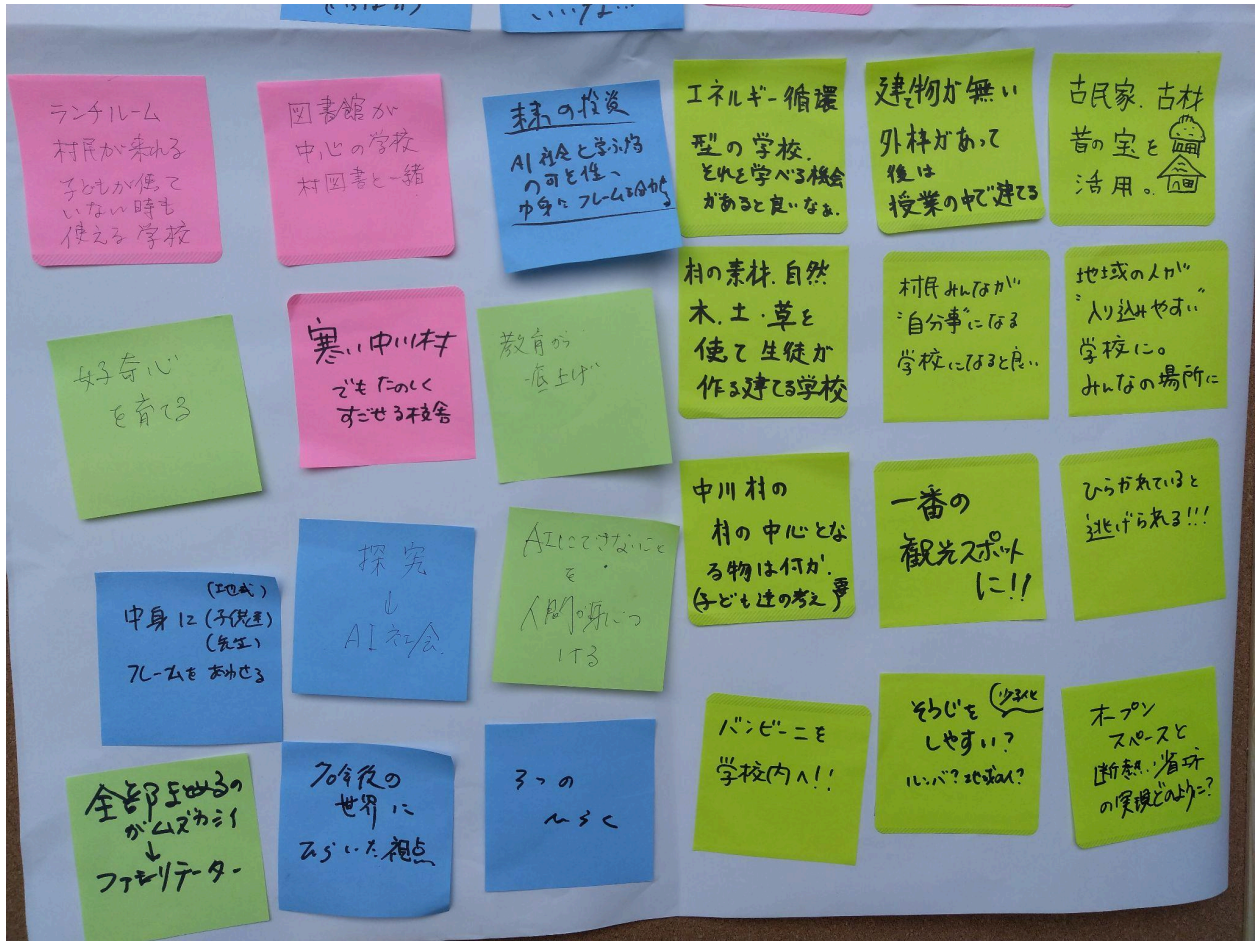 いいな…
ランチルーム
村民が来れる
子どもが使って
いない時も
使える学校
図書館が
中心の学校
村図書と一緒
未来の投資
AI社会と学ぶ
の可を性、
中身に フレームを合わせる
エネルギー循環
型の学校.
それを学べる機会
があると良いなぁ.
建て物が無い
外枠があって
後は
授業の中で建てる
古民家.古材
昔の宝を
活用。
好奇心
を育てる
寒い中川村
でもたのしく
すごせる校舎
教育が
底上げ
村の素材.自然
木.土・草を
使て生徒が
作る建てる学校
村民みんなが
"自分事"になる
学校になると良い
地域の人が
"入り込みやすい"
学校に。
みんなの場所に
(地域)
中身に(子供達)
(先生)
フレームをあわせる
探究
↓
AI社会.
AIにできないこと
を
人間が身につ
ける
中川村の
村の中心とな
る物は何か.
(子ども達の考え)
一番の
観光スポット
に!!
ひらかれていると
逃げられる!!!
全部を決めるの
がムズカシイ
↓
ファシリテーター
70年後の
世界に
ひらいた視点
3つの
ひらく
バンビーニを
学校内へ!!
そうじを
しやすい?
少子化
ルンバ?地域の人?
オープン
スペースと
断熱.省エネ
の実現どのように?